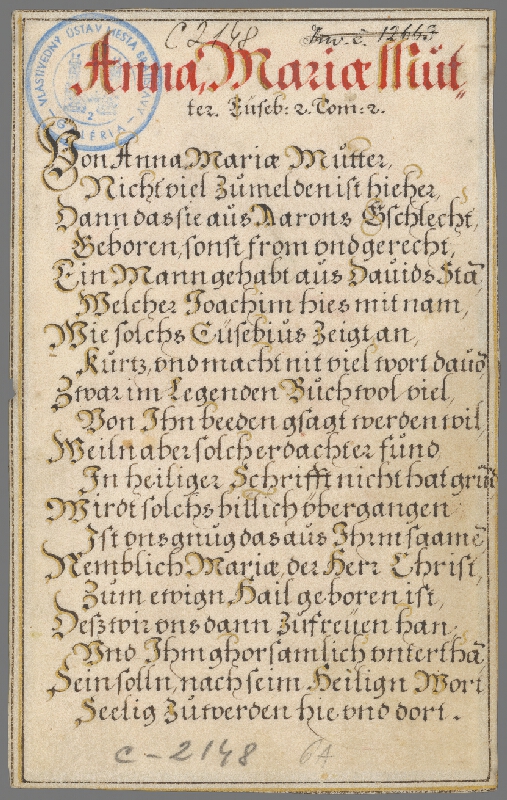 C 2148 Inv. č. 12663
VLASTIVEDNÝ ÚSTAV MESTA BRATISLAVY
GALÉRIA
2
Anna, Mariæ Müt=
ter. Euseb: 2. Tom: 2.
Von Anna Mariæ Mutter,
Nicht viel Zumelden ist hieher,
Dann das sie aus Aarons Gschlecht,
Geboren, sonst from vnd gerecht,
Ein Mann gehabt aus Dauids Stā,
Welcher Joachim hies mit nam,
Wie solchs Eusebius Zeigt an,
Kurtz, vnd macht nit viel wort dauō
Zwar im Legenden Buch wol viel,
Von Ihn beeden gsagt werden wil,
Weiln aber solch erdachter fund
In heiliger Schrifft nicht hat grūd
Wirdt solchs billich vbergangen
Ist vns gnug das aus Ihrm sgamē
Nemblich Mariæ, der Herr Christ,
Zum ewign Hail geboren ist,
Desz wir vns dann Zufreuen han
Vnd Ihm ghorsamlich vnterthā
Sein solln, nach seim Heilign Wort
Seelig Zuwerden hie vnd dort.
C-2148 6A